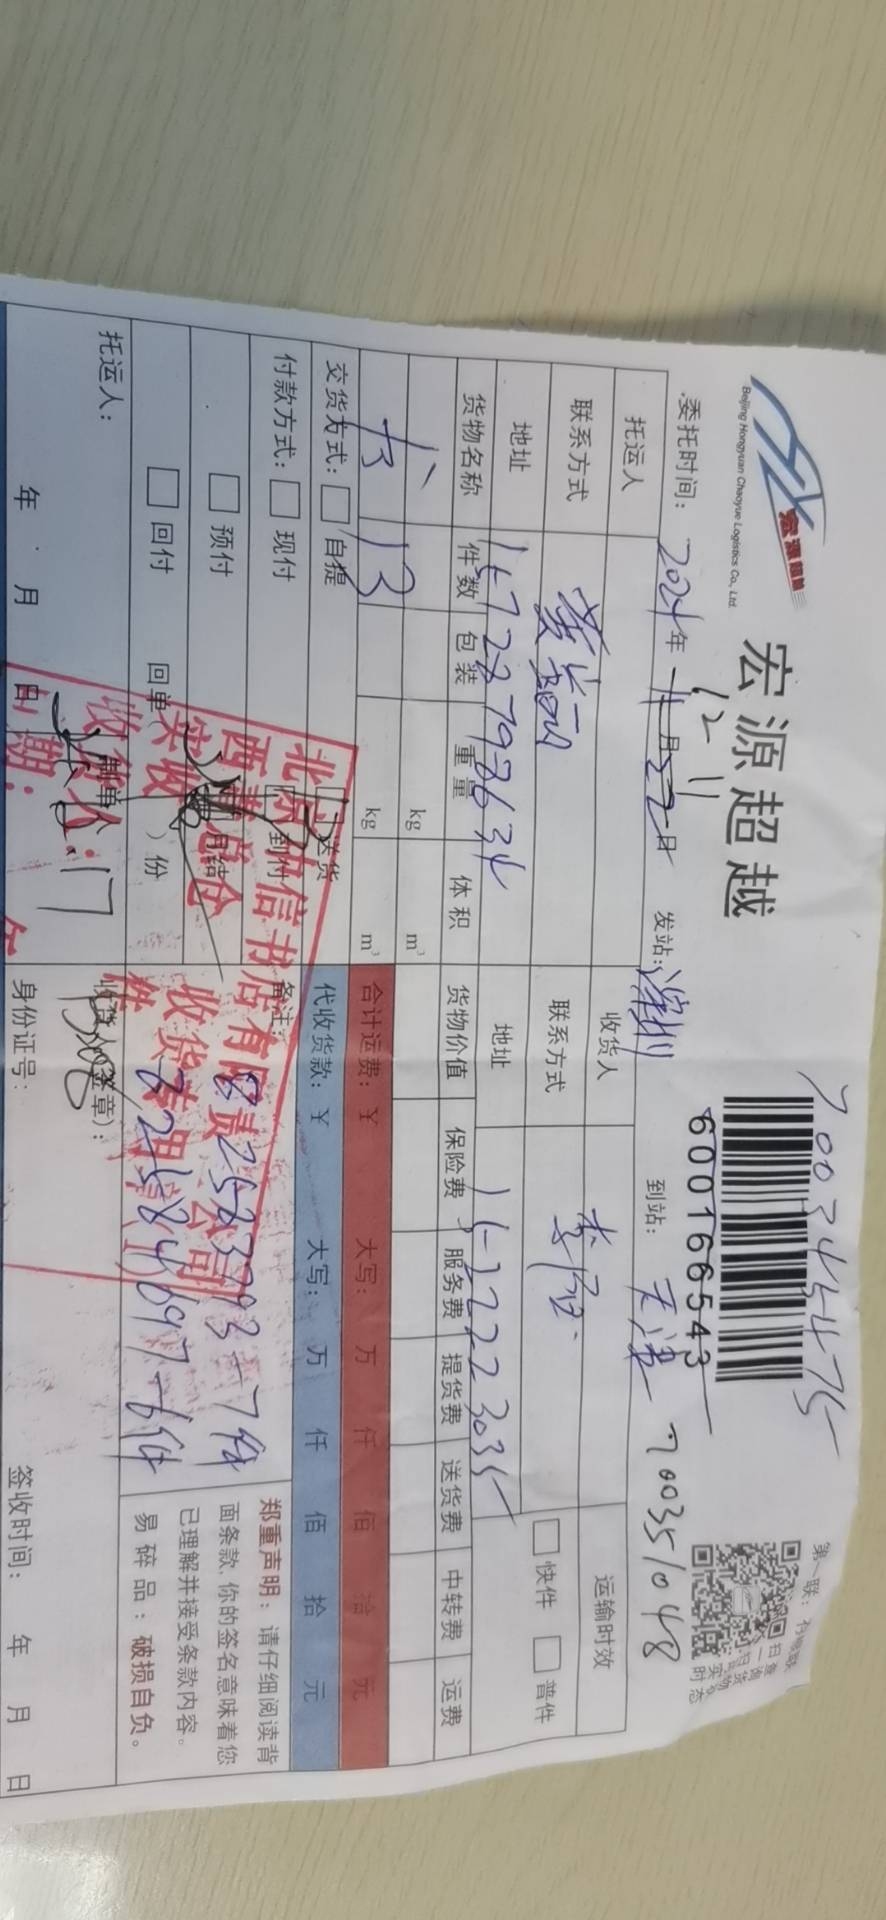 宏源超越
Beijing Hongyuan Chaoyue Logistics Co., Ltd.
宏源超越
70034475
600166543
700351048
第一联：
扫一扫
查询货物实时状态
委托时间：2024年 月22日 发站：深圳 到站：天津
12 1
托运人 收货人 运输时效
联系方式 黄 联系方式 李 快件 普件
地址 地址
货物名称 件数 包装 重量 体积 货物价值 保险费 服务费 提货费 送货费 中转费 运费
kg m³
书 13 kg m³ 合计运费：￥ 大写： 万 仟 佰 拾 元
交货方式： 自提 送货 代收货款：￥ 大写： 万 仟 佰 拾 元
付款方式： 现付 到付 备注：
预付 月结
回付 回单（ ）份
82583793-7件
82584697-6件
郑重声明：请仔细阅读背
面条款，你的签名意味着您
已理解并接受条款内容。
易碎品：破损自负。
托运人： 制单人： 收货人（签章）：
年 月 日 身份证号： 签收时间： 年 月 日
北京中信书店有限责任公司
西 总仓 收货专用章
实收 件
收货人：
日期：